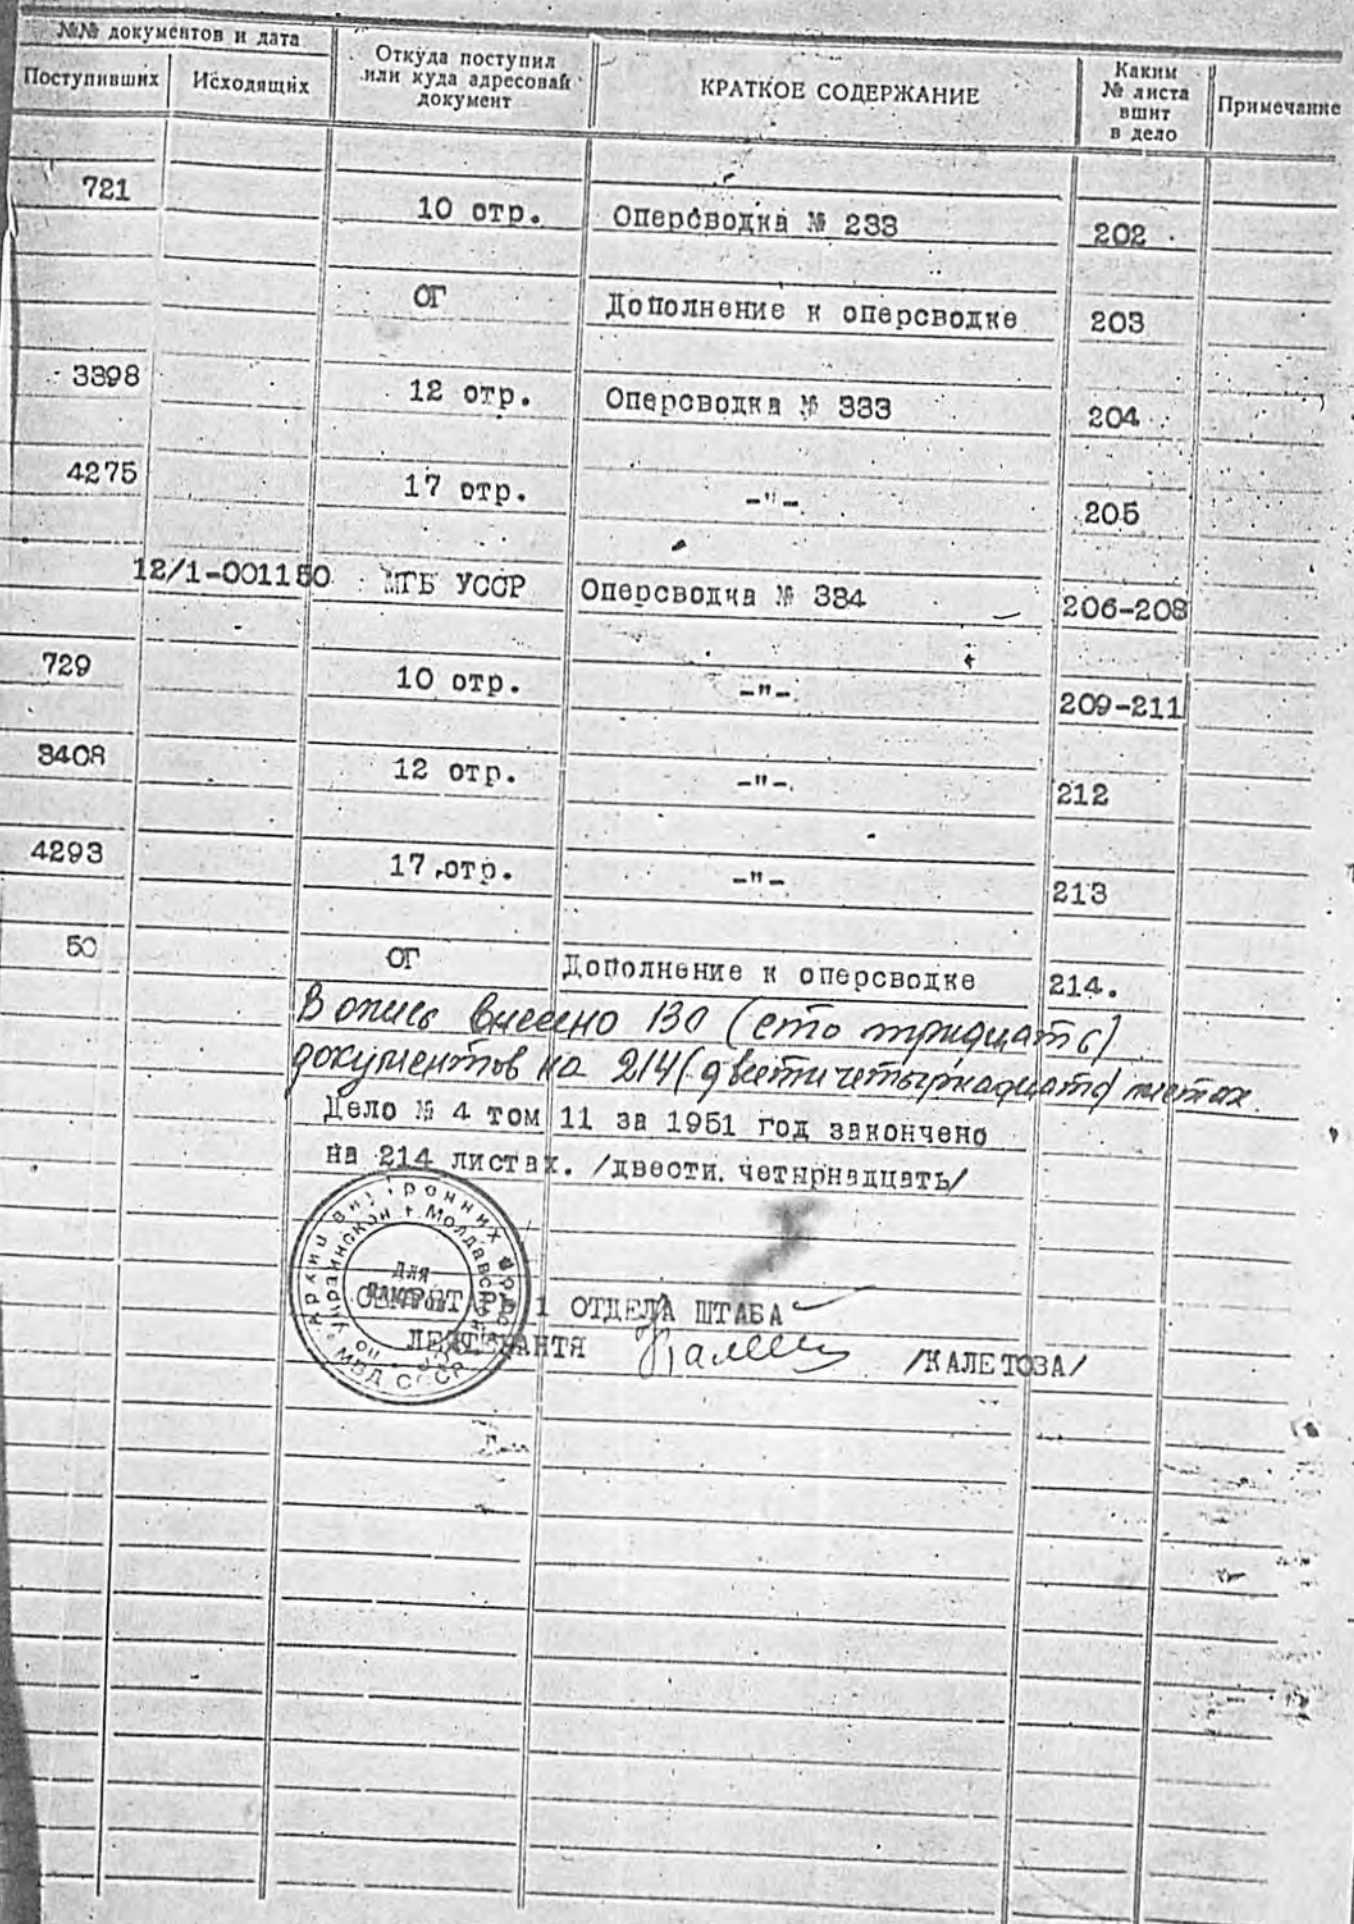 №№ документов и дата
Поступивших
Исходящих
Откуда поступил
или куда адресован
документ
КРАТКОЕ СОДЕРЖАНИЕ
Каким
№ листа
вшит
в дело
Примечание
721 10 отр. Оперсводка № 233 202
ОГ Дополнение к оперсводке 203
3398 12 отр. Оперсводка № 333 204
4275 17 отр. -"- 205
12/1-001150 МГБ УССР Оперсводка № 334 206-208
729 10 отр. -"- 209-211
3408 12 отр. -"- 212
4293 17 отр. -"- 213
50 ОГ Дополнение к оперсводке 214.
В опись внесено 130 (сто тридцать)
документов на 214 (двести четырнадцать) листах.
Дело № 4 том 11 за 1951 год закончено
на 214 листах. /двести. четырнадцать/
Архив внутренних
по Украинской и Молдавской
МВД СССР
Для
СЕКРЕТАРЬ 1 ОТДЕЛА ШТАБА
ЛЕЙТЕНАНТ
/КАЛЕТОЗА/